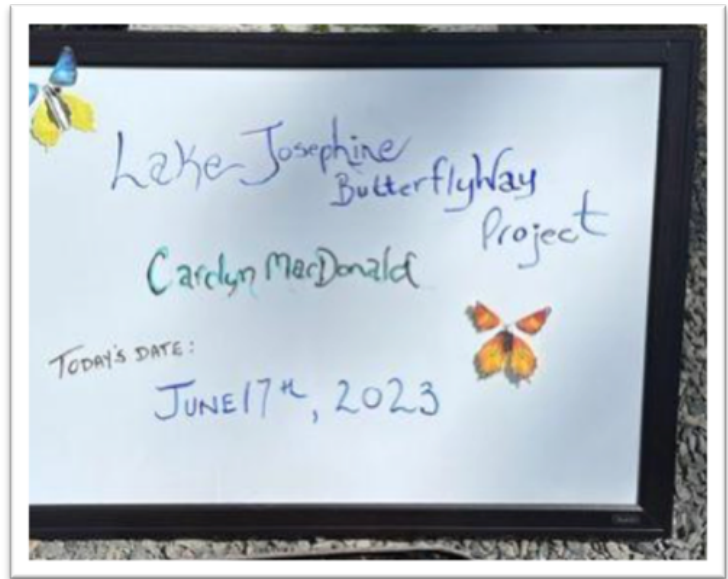 Lake Josephine
ButterflyWay
Project
Carolyn MacDonald
TODAY'S DATE:
JUNE 17th, 2023